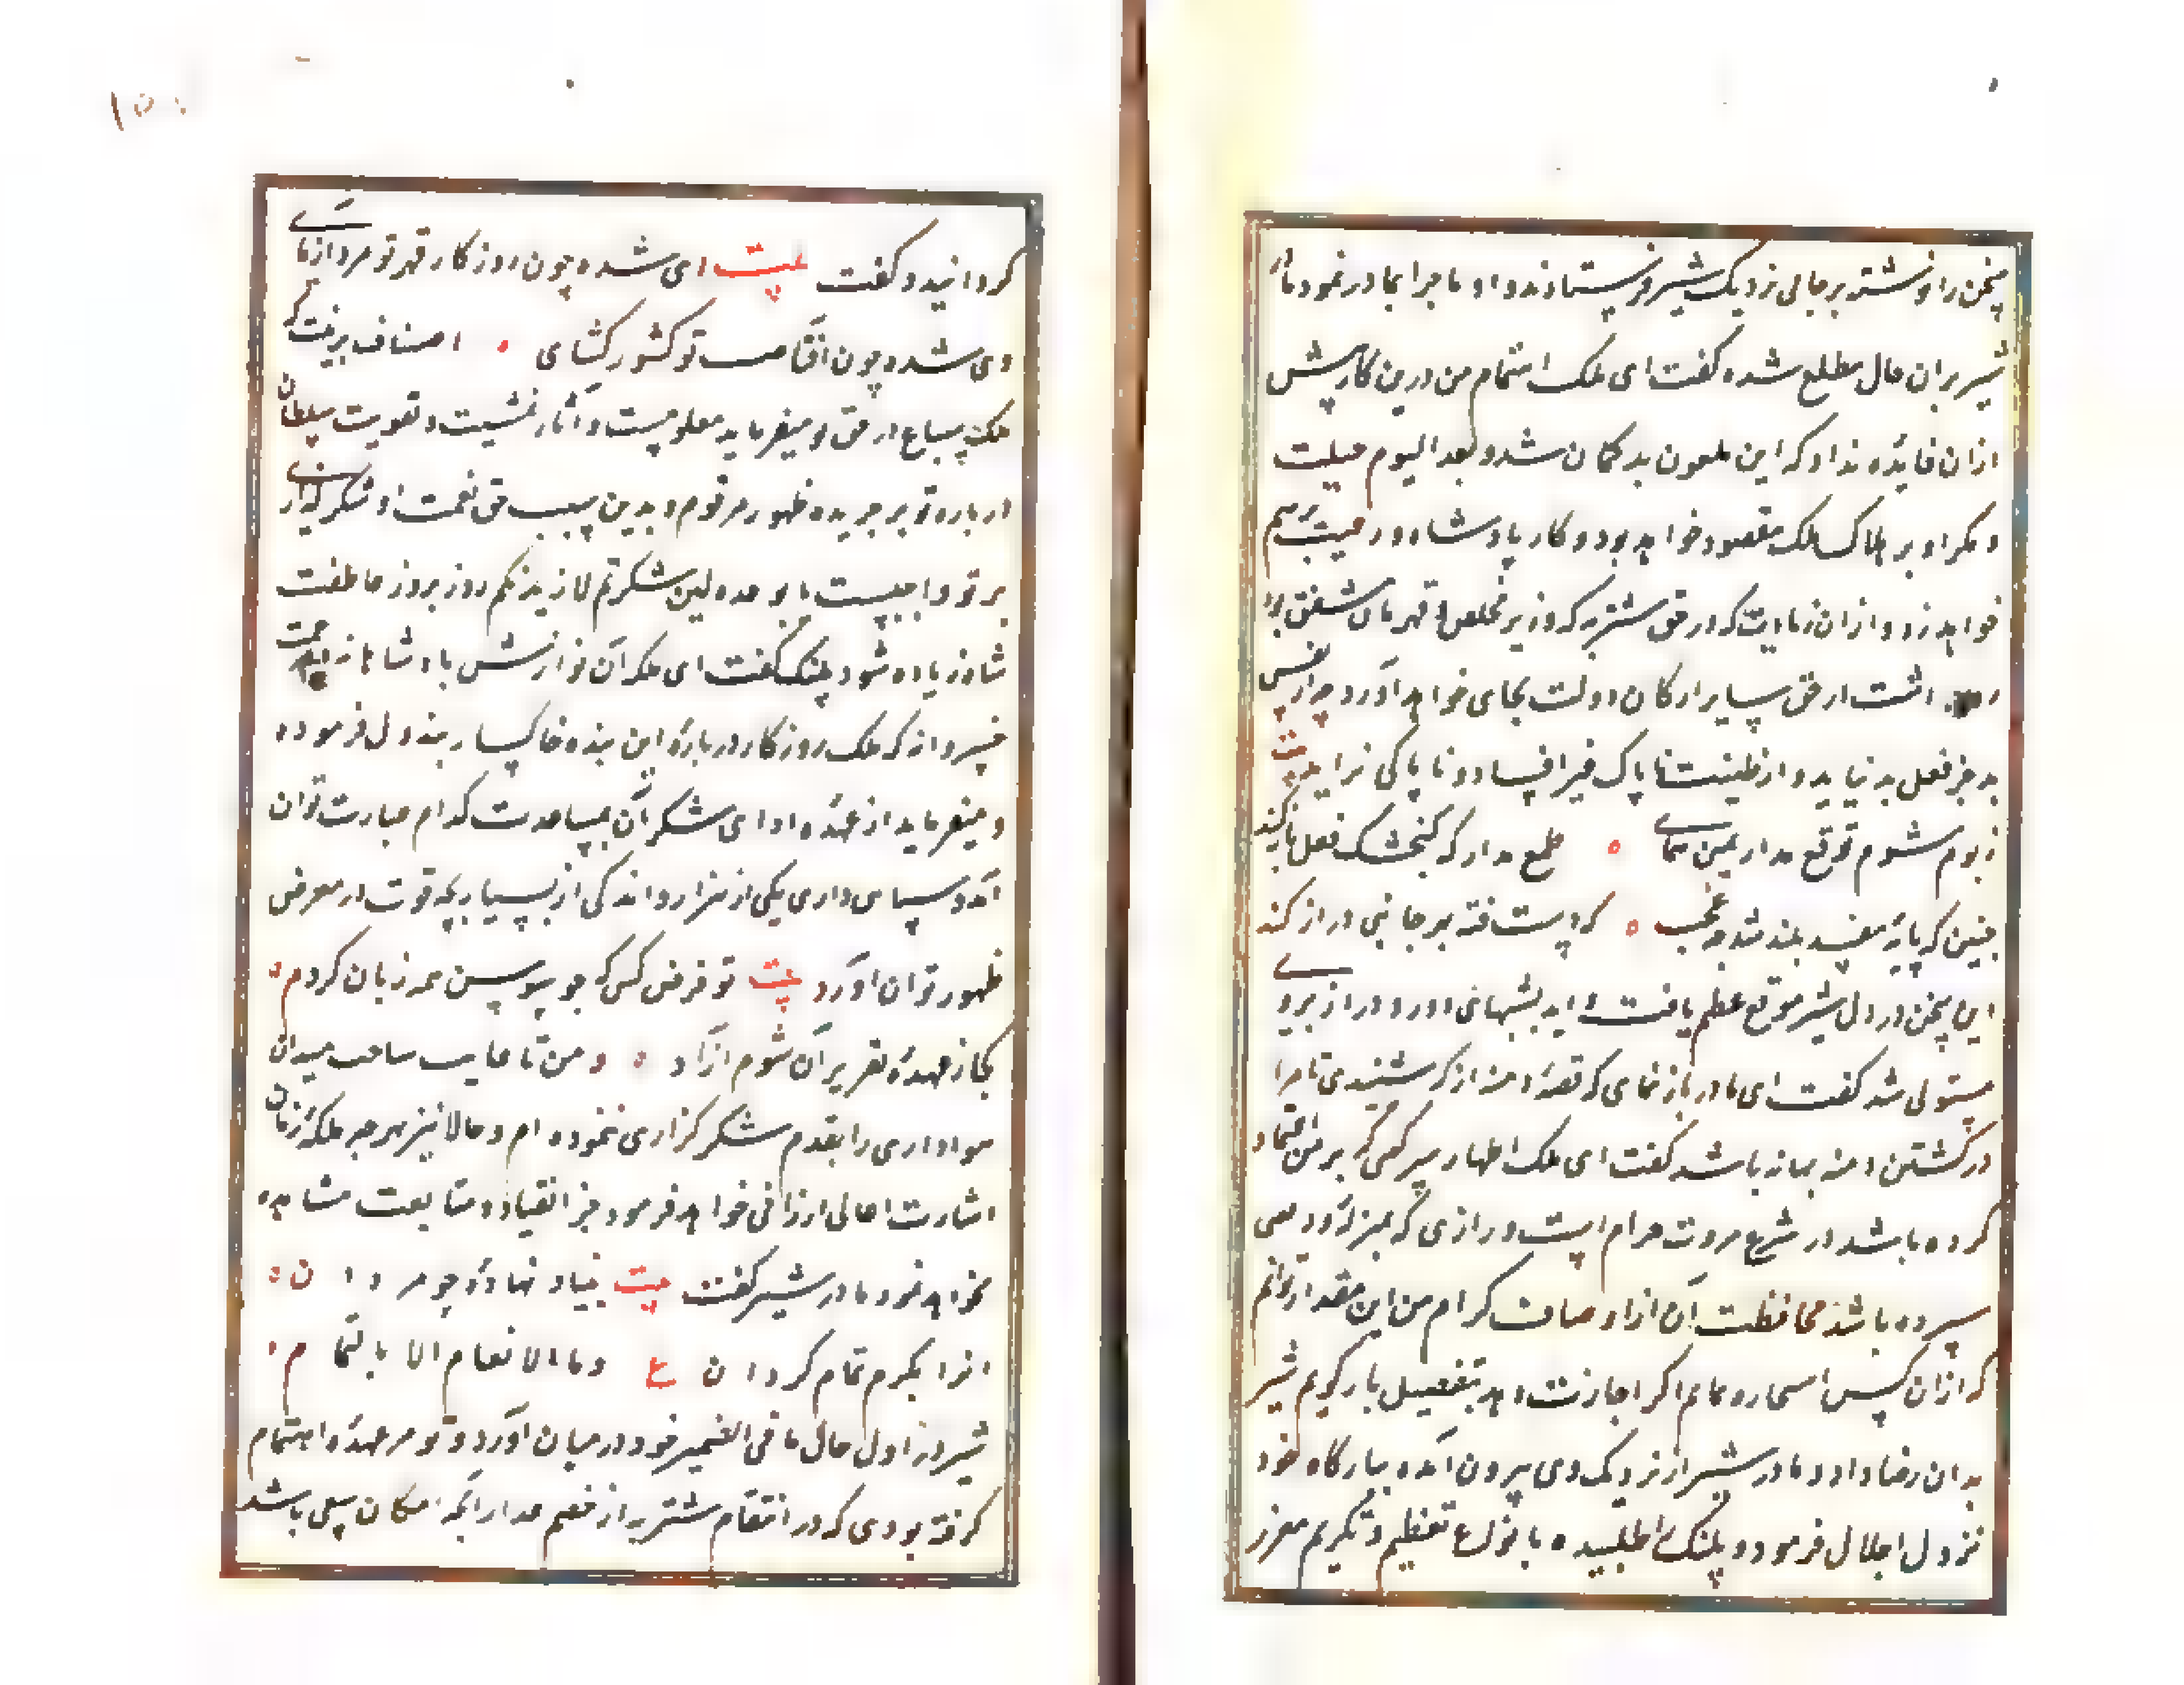 سخن را نوشته بر جالی نزدیک شیر فرستادند و او ماجرا بمادر نمود مادر
شیر بران حال مطلع شده گفت ای ملک اهتمام من درین کار بیش
ازان فایده نداد که این ملعون بد کمان شد و بعد الیوم حیلت
و مکر او بر هلاک ملک مقصود خواهد بود و کار پادشاه در
خواهد زد و ازان زمانیت که در حق شنزبه که وزیر مخلص و قهرمان مشفق بود
داشت در حق سایر ارکان دولت بجای خواهد آورد چه از نفس
بد جز فعل بد نیاید و از طینت ناپاک غیر افساد و ناپاکی نزاید بیت
ز بوم شوم توقع مدار یمن همای ۰ طمع مدار که کنجشک فعل باز کند
چنین که پایه مفسد بلند شد چه عجب ۰ که دست فتنه بهر جانبی دراز کند
این سخن در دل شیر موقع عظم یافت و اندیشهای دور و دراز بروی
مستولی شد گفت ای مادر باز نمای که قصه دمنه از که شنیدی تا مرا
در کشتن دمنه بهانه باشد گفت ای ملک اظهار سر کسی که بر من اعتماد
کرده باشد در شرع مروت حرام است و رازی که بمنزله ودیعتی
سپرده باشد محافظت آن از اوصاف کرام من این مقدار توانم
که ازان کس استجازه نمایم اکر اجازت دهد بتفصیل باز کویم شیر
بدان رضا داد و مادر شیر از نزدیک وی بیرون آمده ببارگاه خود
نزول اجلال فرمود و پلنک را طلبیده بانواع تعظیم و تکریم معزز
۱۵۰
کردانید و گفت بیت ای شده چون روزکار قهر تو مرد ازمای
وی شده چون آفتاب تو کشور کشای ۰ اصناف تربیت که
ملک سباع در حق تو میفرماید معلومست و آثار تمشیت و تقویت سلطان
در باره تو بر جریده ظهور مرقوم و بدین سبب حق نعمت او شکر گذاری
بر تو واجبست تا بوعده لین شکرتم لازیدنکم روز بروز عاطفت
شاه زیاده شود پلنک گفت ای ملکه آن نوازش پادشاهانه و مرحمت
خسروانه که ملک روزکار درباره این بنده خاکسار مبذول فرموده
و میفرماید از عهده ادای شکر آن بمساعدت کدام عبارت توان
آمد و سپاس داری یکی از هزار و اندکی از بسیار بچه قوت در معرض
ظهور توان آورد بیت تو فرض کن که چو سوسن همه زبان کردم ۰
کجا ز عهده تقریر آن شوم آزاد ۰ و من تا غایت ساحت میدان
هواداری را بقدم شکر کزاری نموده ام و حالا نیز هر چه ملکه زمان
اشارت عالی ارزانی خواهد فرمود جز انقیاد و متابعت مشاهده
نخواهد نمود مادر شیر گفت بیت بنیاد نهاده چو مردان ۰
انرا بکرم تمام کردان ع و ما الانعام الا بالتمام ۰
شیر در اول حال ما فی الضمیر خود در میان آورد و تو بر عهده اهتمام
کرفته بودی که در انتقام شنزبه از خصم غدار آنچه امکان سعی باشد